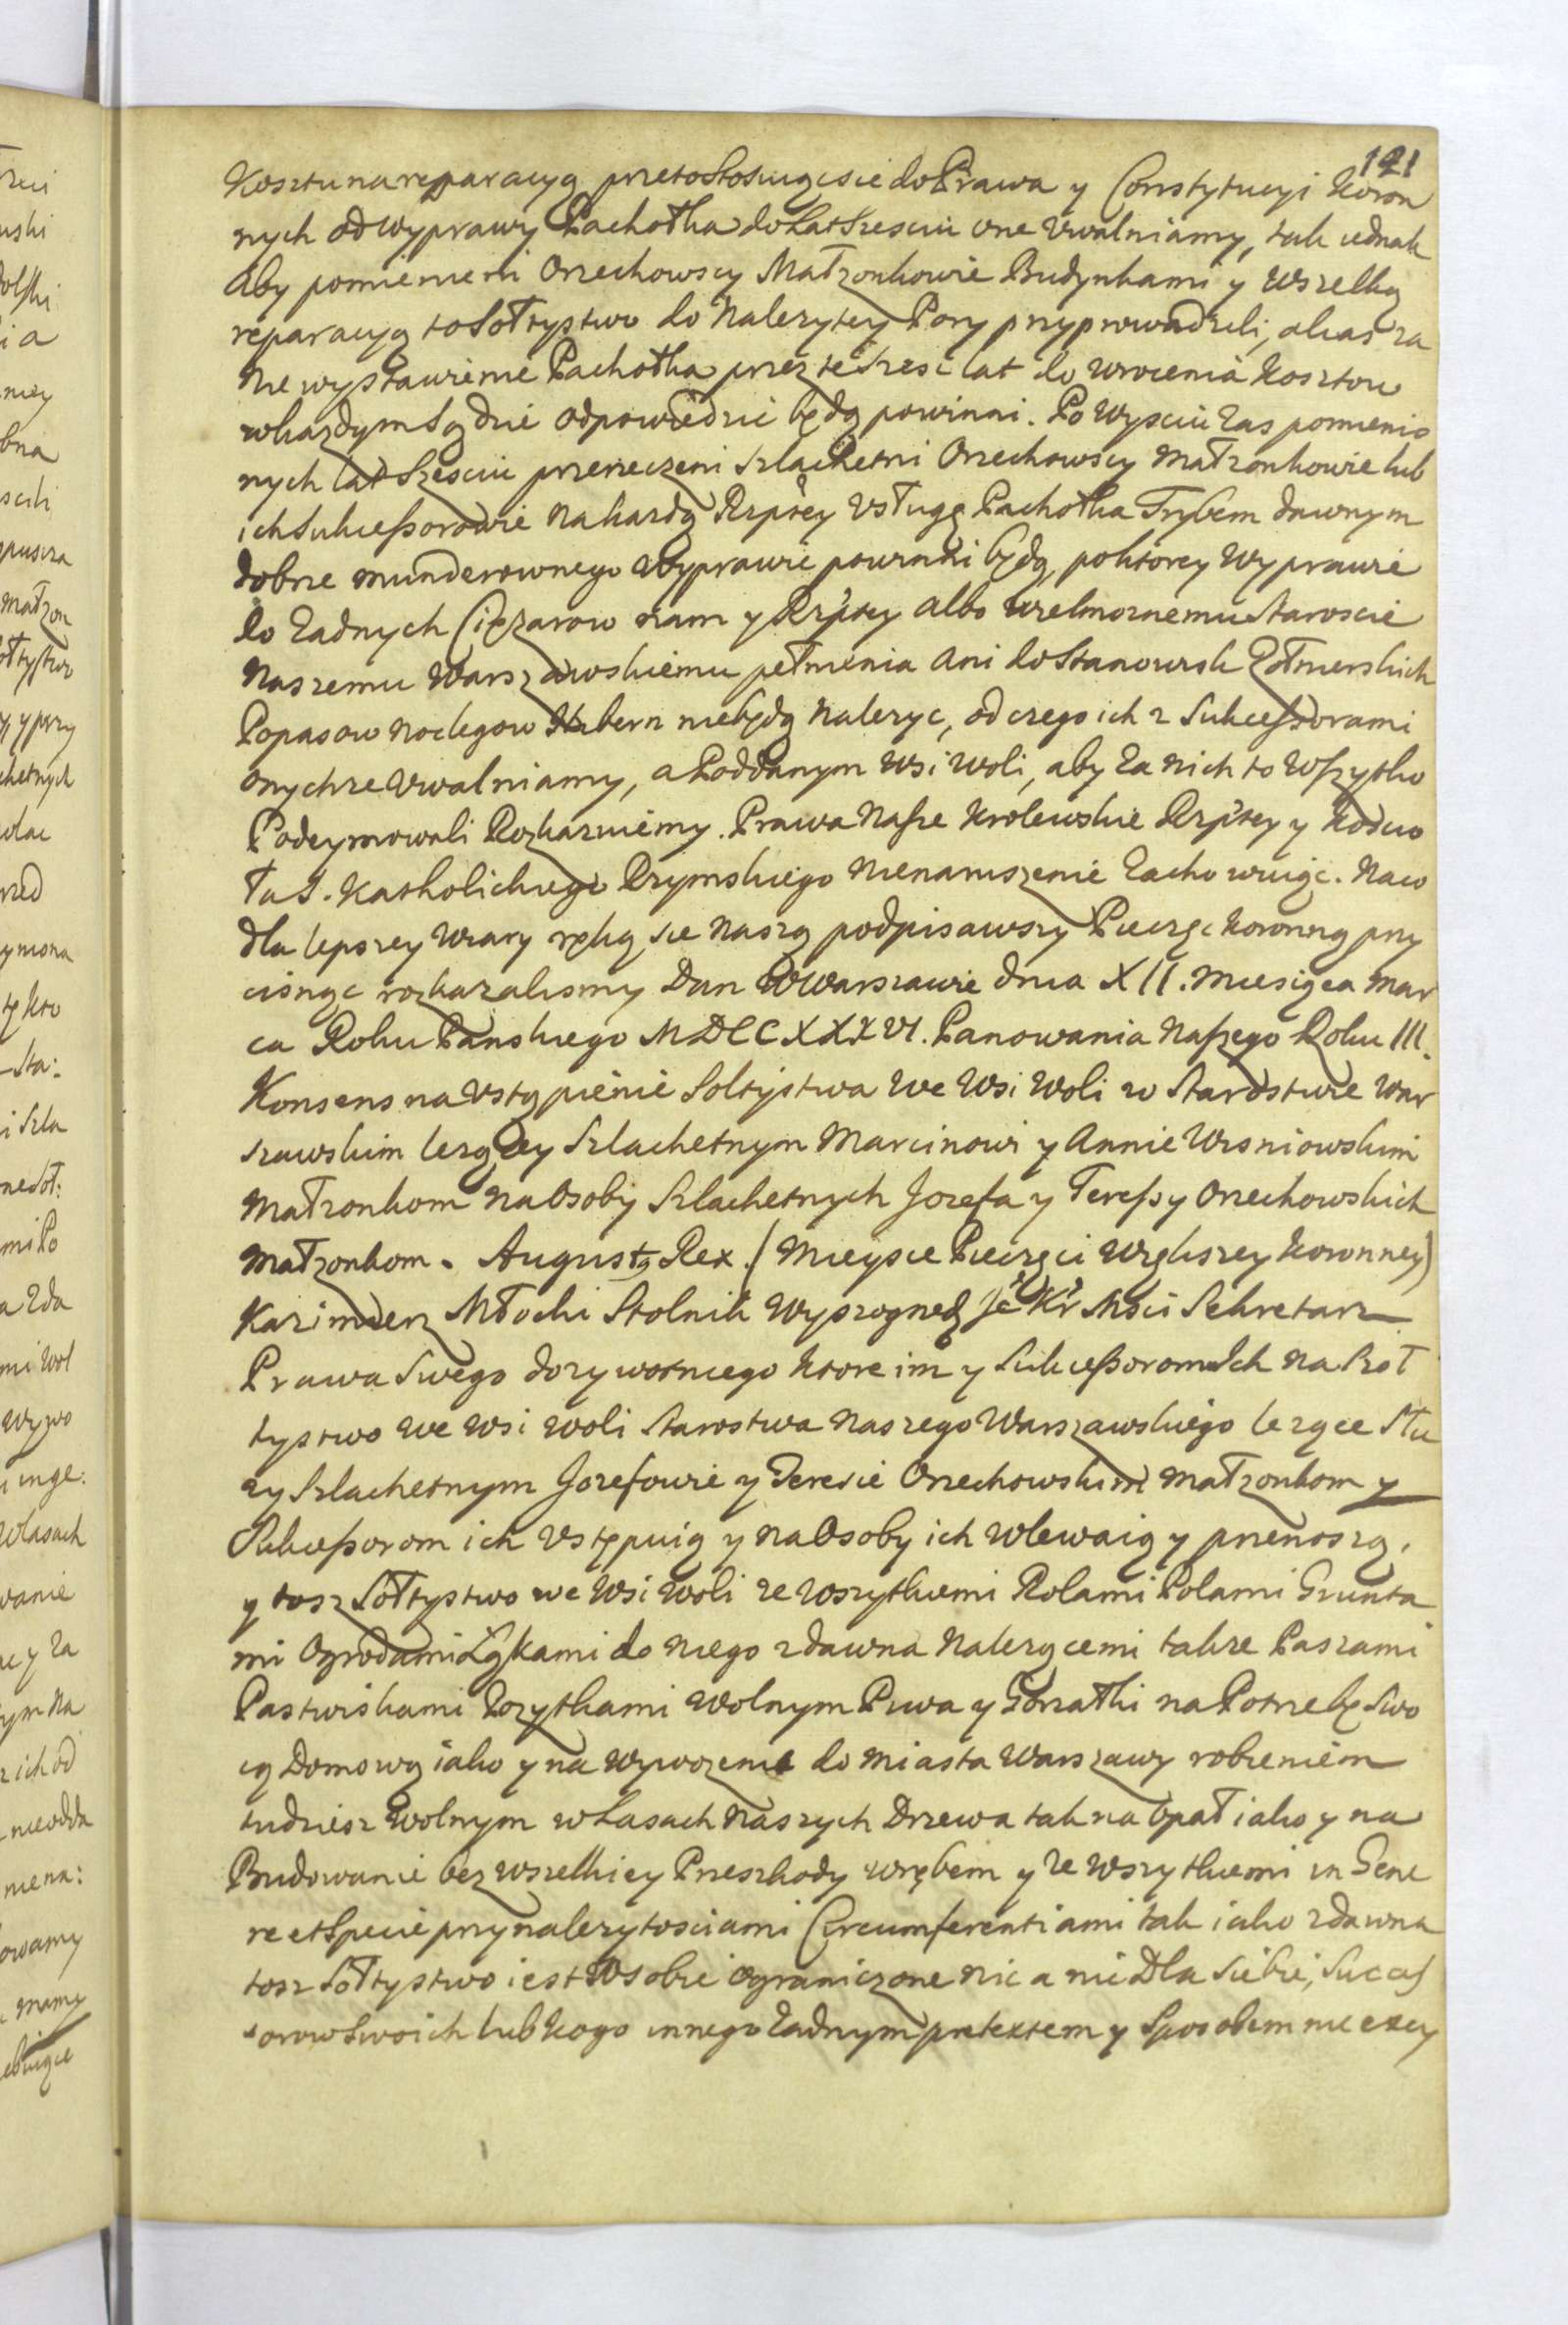 121
Kosztu na reparacyą przeto stosuiąc sie do Prawa y Constytucyi Koron
nych od wyprawy Pachołka do Lat Szesciu one Uwalniamy, tak iednak
Aby pomienieni Orzechowscy Małzonkowie Budynkami y Wszelką
reparacyą to Sołtystwo do Nalezytey Pory przyprowadzili, alias za
Nie wystawienie Pachołka przez te szesc lat do wrocenia kosztow
w kazdym Sądzie odpowiedzic będą powinni. Po Wysciu Zas pomienio
nych lat Szesciu przerzeczeni Szlachetni Orzechowscy Małzonkowie lub
ich Sukceßorowie Na kazdą Rzptey Usługę Pachołka Trybem dawnym
dobrze munderownego Wyprawic powinni będą, po ktorey Wyprawie
do Zadnych Cięzarow nam y Rzptey albo Wielmoznemu Staroscie
Naszemu Warszawskiemu pełnienia Ani do Stanowisk Zołnierskich
Popasow Noclegow Hibern niebędą Nalezyc, od czego ich z Sukceßorami
onychze Uwalniamy, a Poddanym Wsi Woli, aby Za nich to Wszytko
Podeymowali Rozkazuiemy. Prawa Nasze Krolewskie Rzptey y Koscio
ła S. Katholickiego Rzymskiego Nienaruszenie Zachowuiąc. Na co
dla lepszey Wiary ręką sie Naszą podpisawszy Pieczęc Koronną przy
cisnąc rozkazalismy Dan W Warszawie dnia XII. Miesiąca Mar
ca Roku Panskiego MDCCXXXVI. Panowania Naszego Roku III.
Konsens na Ustąpienie Soltystwa We Wsi Woli w Starostwie War
szawskim lezącey Szlachetnym Marcinowi y Annie Wisniowskim
Małzonkom Na Osoby Szlachetnych Jozefa y Tereßy Orzechowskich
Małzonkom. Augustg Rex. (Mieysce Pieczęci Większey Koronney)
Kazimierz Młocki Stolnik Wyszogrodz Je° Kr Mści Sekretarz
Prawa Swego dozywotniego ktore im y Sukceßorom Ich Na Szoł
tystwo We Wsi Woli Starostwa Naszego Warszawskiego lezące Słu
zy Szlachetnym Jozefowie y Teresie Orzechowskim Małzonkom y
Sukceßorom ich Ustępuią y Na Osoby ich Wlewaią y przenoszą,
y tosz Sołtystwo we Wsi Woli ze Wszytkiemi Rolami Polami Grunta
mi Ogrodami Łąkami do Niego zdawna Nalezącemi takze Paszami
Pastwiskami Pozytkami Wolnym Piwa y Gorzałki na Potrzebę Swo
ią Domową iako y na Wywozenie do Miasta Warszawy robieniem
tudziesz Wolnym w Lasach Naszych Drzewa tak na Opał iako y na
Budowanie bez Wszelkiey Przeszkody wrębem y Ze Wszytkiemi in Gene
re et Specie przynalezytosciami Circumferentiami tak iako zdawna
tosz Sołtystwo iest W sobie ograniczone nic a nic Dla Siebie, Succeſ
sorow Swoich lub kogo innego Zadnym pretextem y Sposobem nie excy